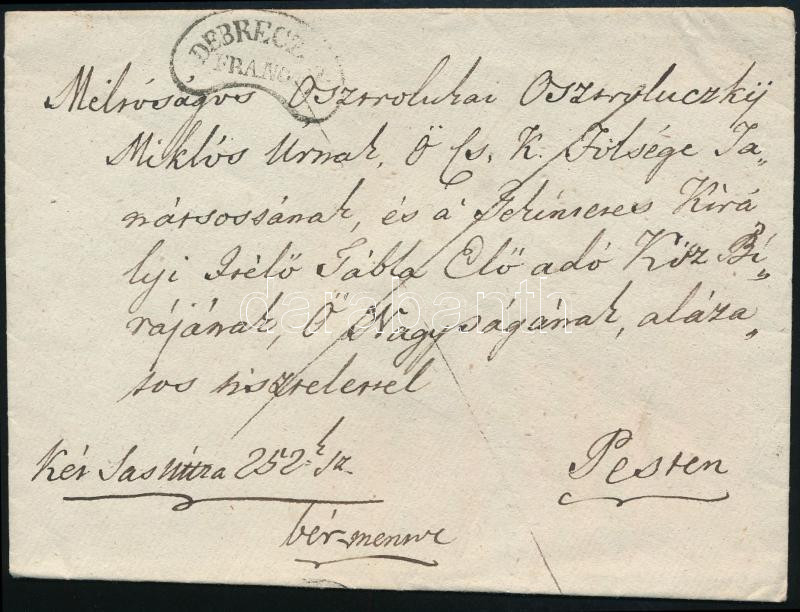 DEBRECZ
FRANCO
Méltóságos Osztroluhai Osztroluczkÿ
Miklós Úrnak, Ő Cs. K. Fölsége Ta„
nátsossának, és á Tekintetes Kirá
lyi Itélő Tábla Elő adó Köz Bí„
rájának, Ő Nagyságának, aláza„
tos tisztelettel
Két Sas Uttza 252k sz.
Pesten
bér-mentve
darabanth